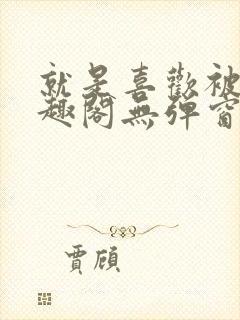 就是喜歡被
趣閣無彈窗
賈頎